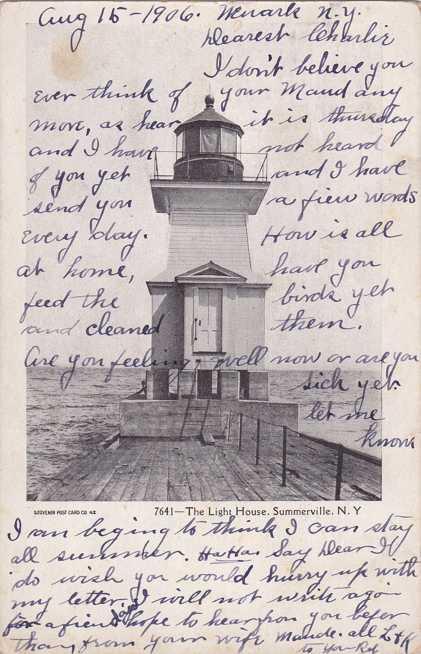 Aug 15-1906. Newark N.Y.
Dearest Charlie
I don't believe you
Ever think of your Maud any
more, as hear it is thursday
and I have not heard
of you yet and I have
send you a fiew words
Every day. How is all
at home, have you
feed the birds yet
and cleaned them.
Are you feeling well now or are you
sich yet.
let me
know
SOUVENIR POST CARD CO. NY
7641—The Light House. Summerville. N. Y
I am beging to think I can stay
all summer. HaHa. Say Dear I
do wish you would hurry up with
my letter, I will not write agin
for a fiew days hope to hear from you befor
than, from your wife Maude. all L & K
to you